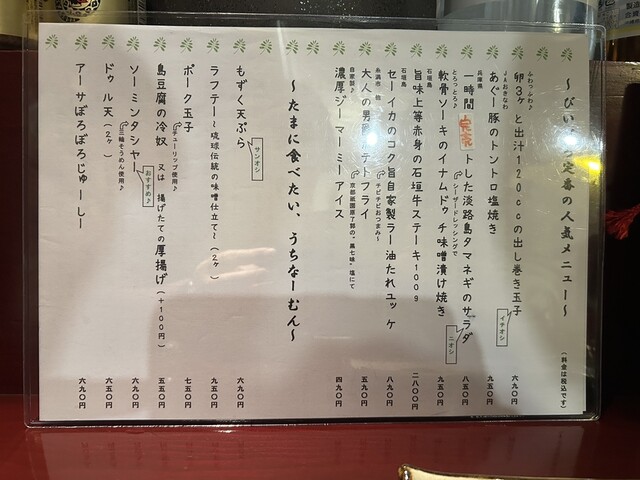 ～びい 定番の人気メニュー～
(料金は税込です)
ふわっふわ♪
卵3ヶと出汁120ccの出し巻き玉子
イチオシ
六九〇円
JAおきなわ
あぐー豚のトントロ塩焼き
九五〇円
兵庫県
一時間 トした淡路島タマネギのサラダ
シーザードレッシングで
ニオシ
八五〇円
とろっとろ♪
軟骨ソーキのイナムドゥチ味噌漬け焼き
九五〇円
石垣島
旨味上等赤身の石垣牛ステーキ100g
二八〇〇円
石垣島
セーイカのコク旨自家製ラー油たれユッケ
八九〇円
糸満市
大人の男 テトフライ
チビチビおつまみ～
五九〇円
自家製♪
濃厚ジーマーミーアイス
京都祇園原了郭の“黒七味”塩にて
四九〇円
～たまに食べたい、うちなーむん～
もずく天ぷら
サンオシ
六九〇円
ラフテー～琉球伝統の味噌仕立て～(2ヶ)
九五〇円
ポーク玉子
チューリップ使用♪
七五〇円
島豆腐の冷奴 又は 揚げたての厚揚げ(+100円)
五五〇円
ソーミンタシヤー
三輪そうめん使用♪
おすすめ♪
六九〇円
ドゥル天(2ヶ)
六五〇円
アーサぼろぼろじゅーしー
六九〇円